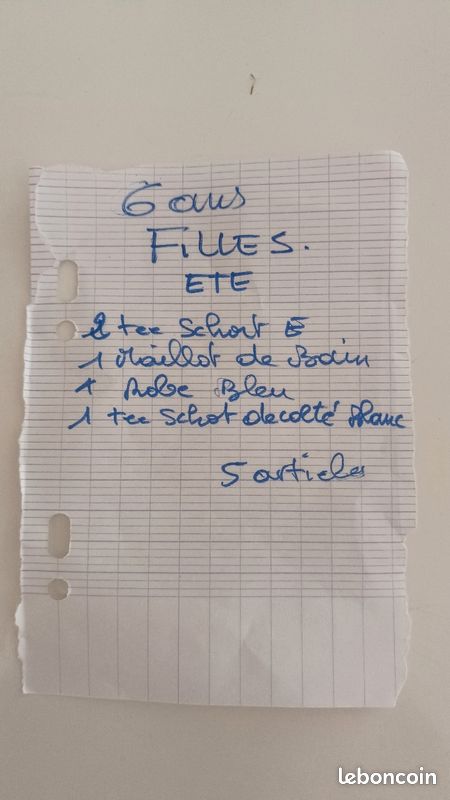 6 ans
FILLES.
ETE
2 tee Schort E
1 Maillot de Bain
1 Robe Bleu
1 tee Schot decolté Blanc
5 articles
leboncoin